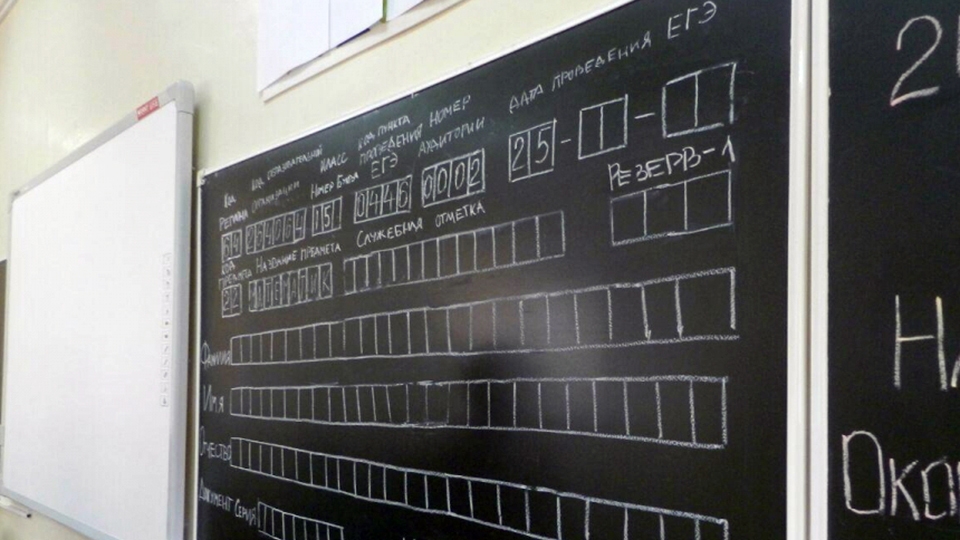 ДАТА ПРОВЕДЕНИЯ ЕГЭ
КОД РЕГИОНА КОД ОБРАЗОВАТЕЛЬНОЙ ОРГАНИЗАЦИИ КЛАСС НОМЕР БУКВА КОД ПУНКТА ПРОВЕДЕНИЯ ЕГЭ НОМЕР АУДИТОРИИ
264064 15 0446 0002 25 - -
РЕЗЕРВ-1
КОД ПРЕДМЕТА НАЗВАНИЕ ПРЕДМЕТА СЛУЖЕБНАЯ ОТМЕТКА
22 МАТЕМАТИК
ФАМИЛИЯ
ИМЯ
ОТЧЕСТВО
ДОКУМЕНТ СЕРИЯ
2
Н
ОКО